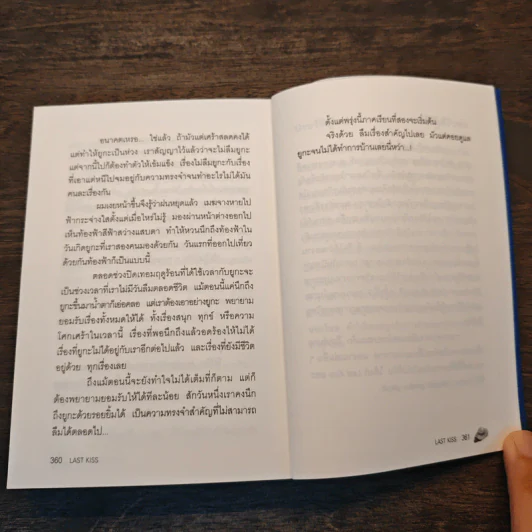 อนาคตเหรอ... ใช่แล้ว ถ้ามัวแต่เศร้าสลดคงได้
แต่ทำให้ยูกะเป็นห่วง เราสัญญาไว้แล้วว่าจะไม่ลืมยูกะ
แต่จากนี้ไปก็ต้องทำตัวให้เข้มแข็ง เรื่องไม่ลืมยูกะกับเรื่อง
ที่เอาแต่หนีไปจมอยู่กับความทรงจำจนทำอะไรไม่ได้มัน
คนละเรื่องกัน
ผมเงยหน้าขึ้นจึงรู้ว่าฝนหยุดแล้ว เมฆจางหายไป
ฟ้ากระจ่างใสตั้งแต่เมื่อไหร่ไม่รู้ มองผ่านหน้าต่างออกไป
เห็นท้องฟ้าสีฟ้าสว่างแสบตา ทำให้หวนนึกถึงท้องฟ้าใน
วันเกิดยูกะที่เราสองคนมองด้วยกัน วันแรกที่ออกไปเที่ยว
ด้วยกันท้องฟ้าก็เป็นแบบนี้
ตลอดช่วงปิดเทอมฤดูร้อนที่ได้ใช้เวลากับยูกะจะ
เป็นช่วงเวลาที่เราไม่มีวันลืมตลอดชีวิต แม้ตอนนี้แค่นึกถึง
ยูกะขึ้นมาน้ำตาก็เอ่อคลอ แต่เราต้องเอาอย่างยูกะ พยายาม
ยอมรับเรื่องทั้งหมดให้ได้ ทั้งเรื่องสนุก ทุกข์ หรือความ
โศกเศร้าในเวลานี้ เรื่องที่พอนึกถึงแล้วอดร้องไห้ไม่ได้
เรื่องที่ยูกะไม่ได้อยู่กับเราอีกต่อไปแล้ว และเรื่องที่ยังมีชีวิต
อยู่ด้วย ทุกเรื่องเลย
ถึงแม้ตอนนี้จะยังทำใจไม่ได้เต็มที่ก็ตาม แต่ก็
ต้องพยายามยอมรับให้ได้ทีละน้อย สักวันหนึ่งเราคงนึก
ถึงยูกะด้วยรอยยิ้มได้ เป็นความทรงจำสำคัญที่ไม่สามารถ
ลืมได้ตลอดไป...
360 LAST KISS
ตั้งแต่พรุ่งนี้ภาคเรียนที่สองจะเริ่มต้น
จริงด้วย ลืมเรื่องสำคัญไปเลย มัวแต่คอยดูแล
ยูกะจนไม่ได้ทำการบ้านเลยนี่หว่า...!
LAST KISS 361